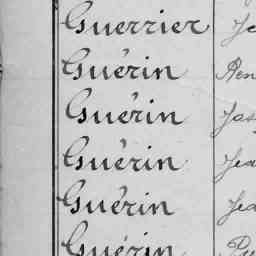 Guerrier Je
Guérin Ren
Guérin Jos
Guérin Jea
Guérin Jea
Guérin